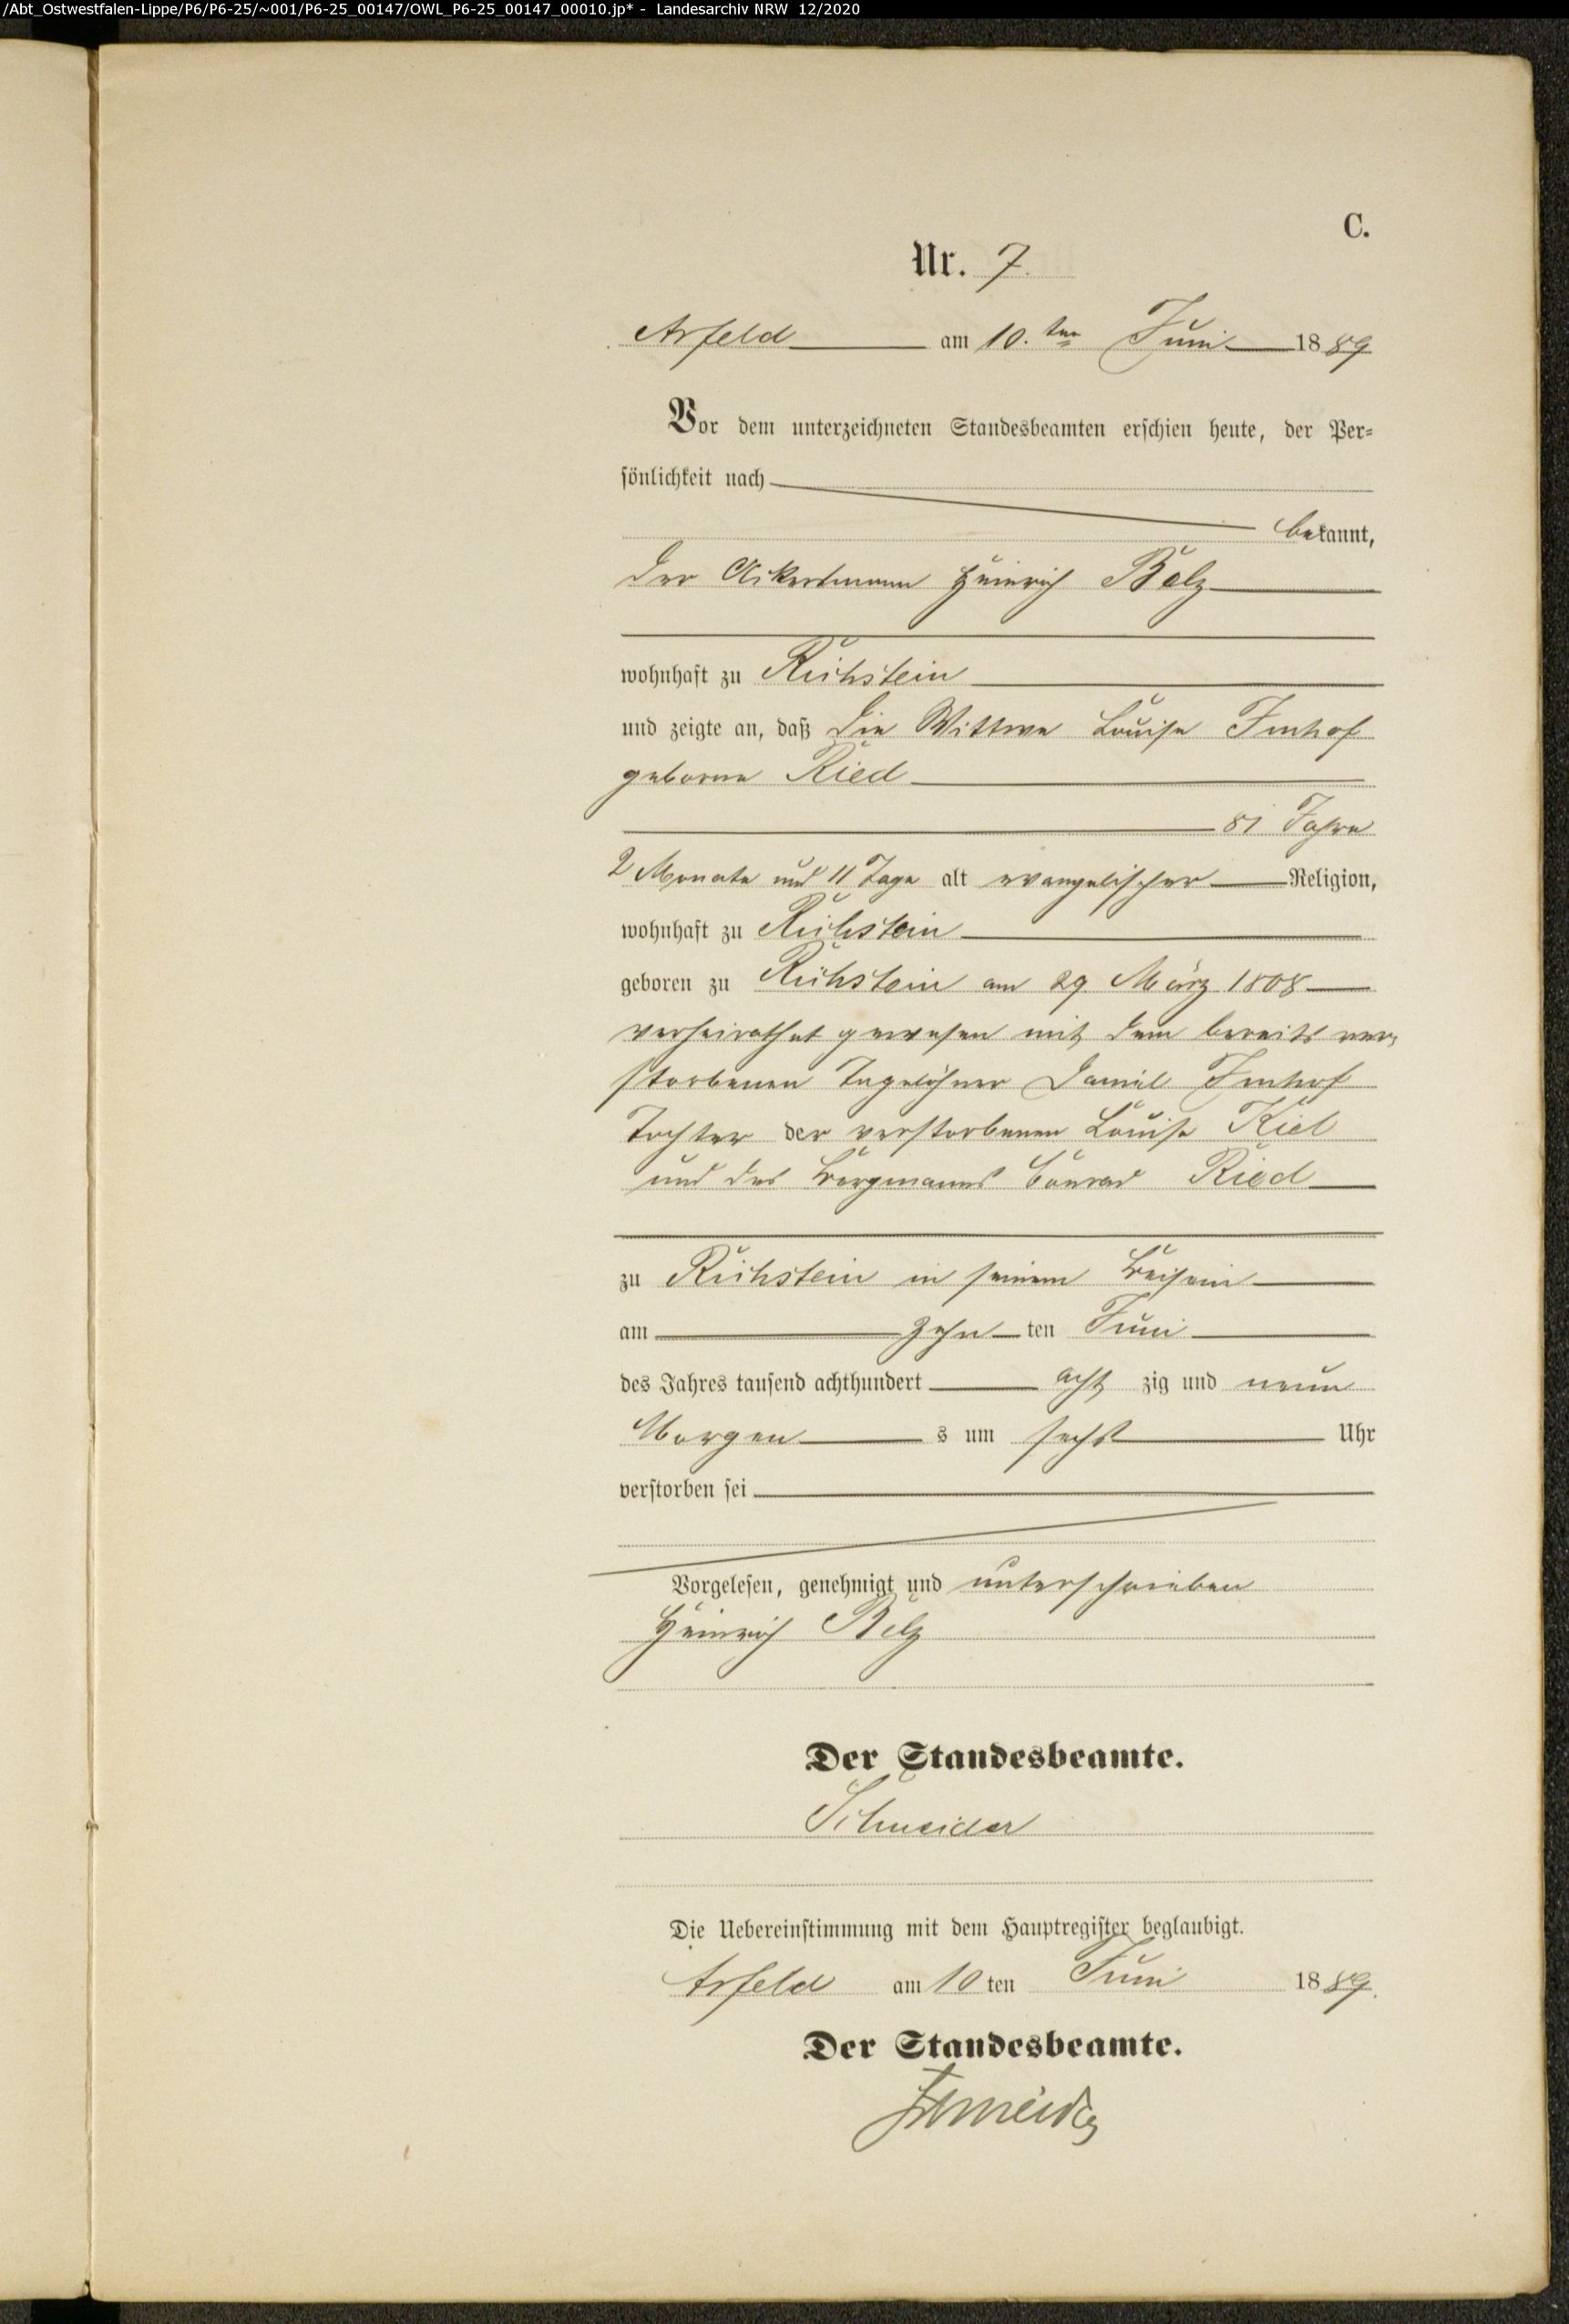 /Abt_Ostwestfalen-Lippe/P6/P6-25/~001/P6-25_00147/OWL_P6-25_00147_00010.jp* - Landesarchiv NRW 12/2020
C.
Nr. 7.
Arfeld am 10.ten Juni 1889
Vor dem unterzeichneten Standesbeamten erschien heute, der Per-
sönlichkeit nach
bekannt,
der Ackersmann Heinrich Belz
wohnhaft zu Richstein
und zeigte an, daß die Wittwe Louise Imhof
geborne Ried
81 Jahre
2 Monate und 11 Tage alt evangelischer Religion,
wohnhaft zu Richstein
geboren zu Richstein am 29 März 1808
verheirathet gewesen mit dem bereits ver-
storbenen Tagelöhner Daniel Imhof
Tochter der verstorbenen Louise Kiel
und des Bergmanns Conrad Ried
zu Richstein in seinem Beisein
am zehn ten Juni
des Jahres tausend achthundert acht zig und neun
Morgen s um sechs Uhr
verstorben sei
Vorgelesen, genehmigt und unterschrieben
Heinrich Belz
Der Standesbeamte.
Schneider
Die Uebereinstimmung mit dem Hauptregister beglaubigt.
Arfeld am 10 ten Juni 1889.
Der Standesbeamte.
Schneider